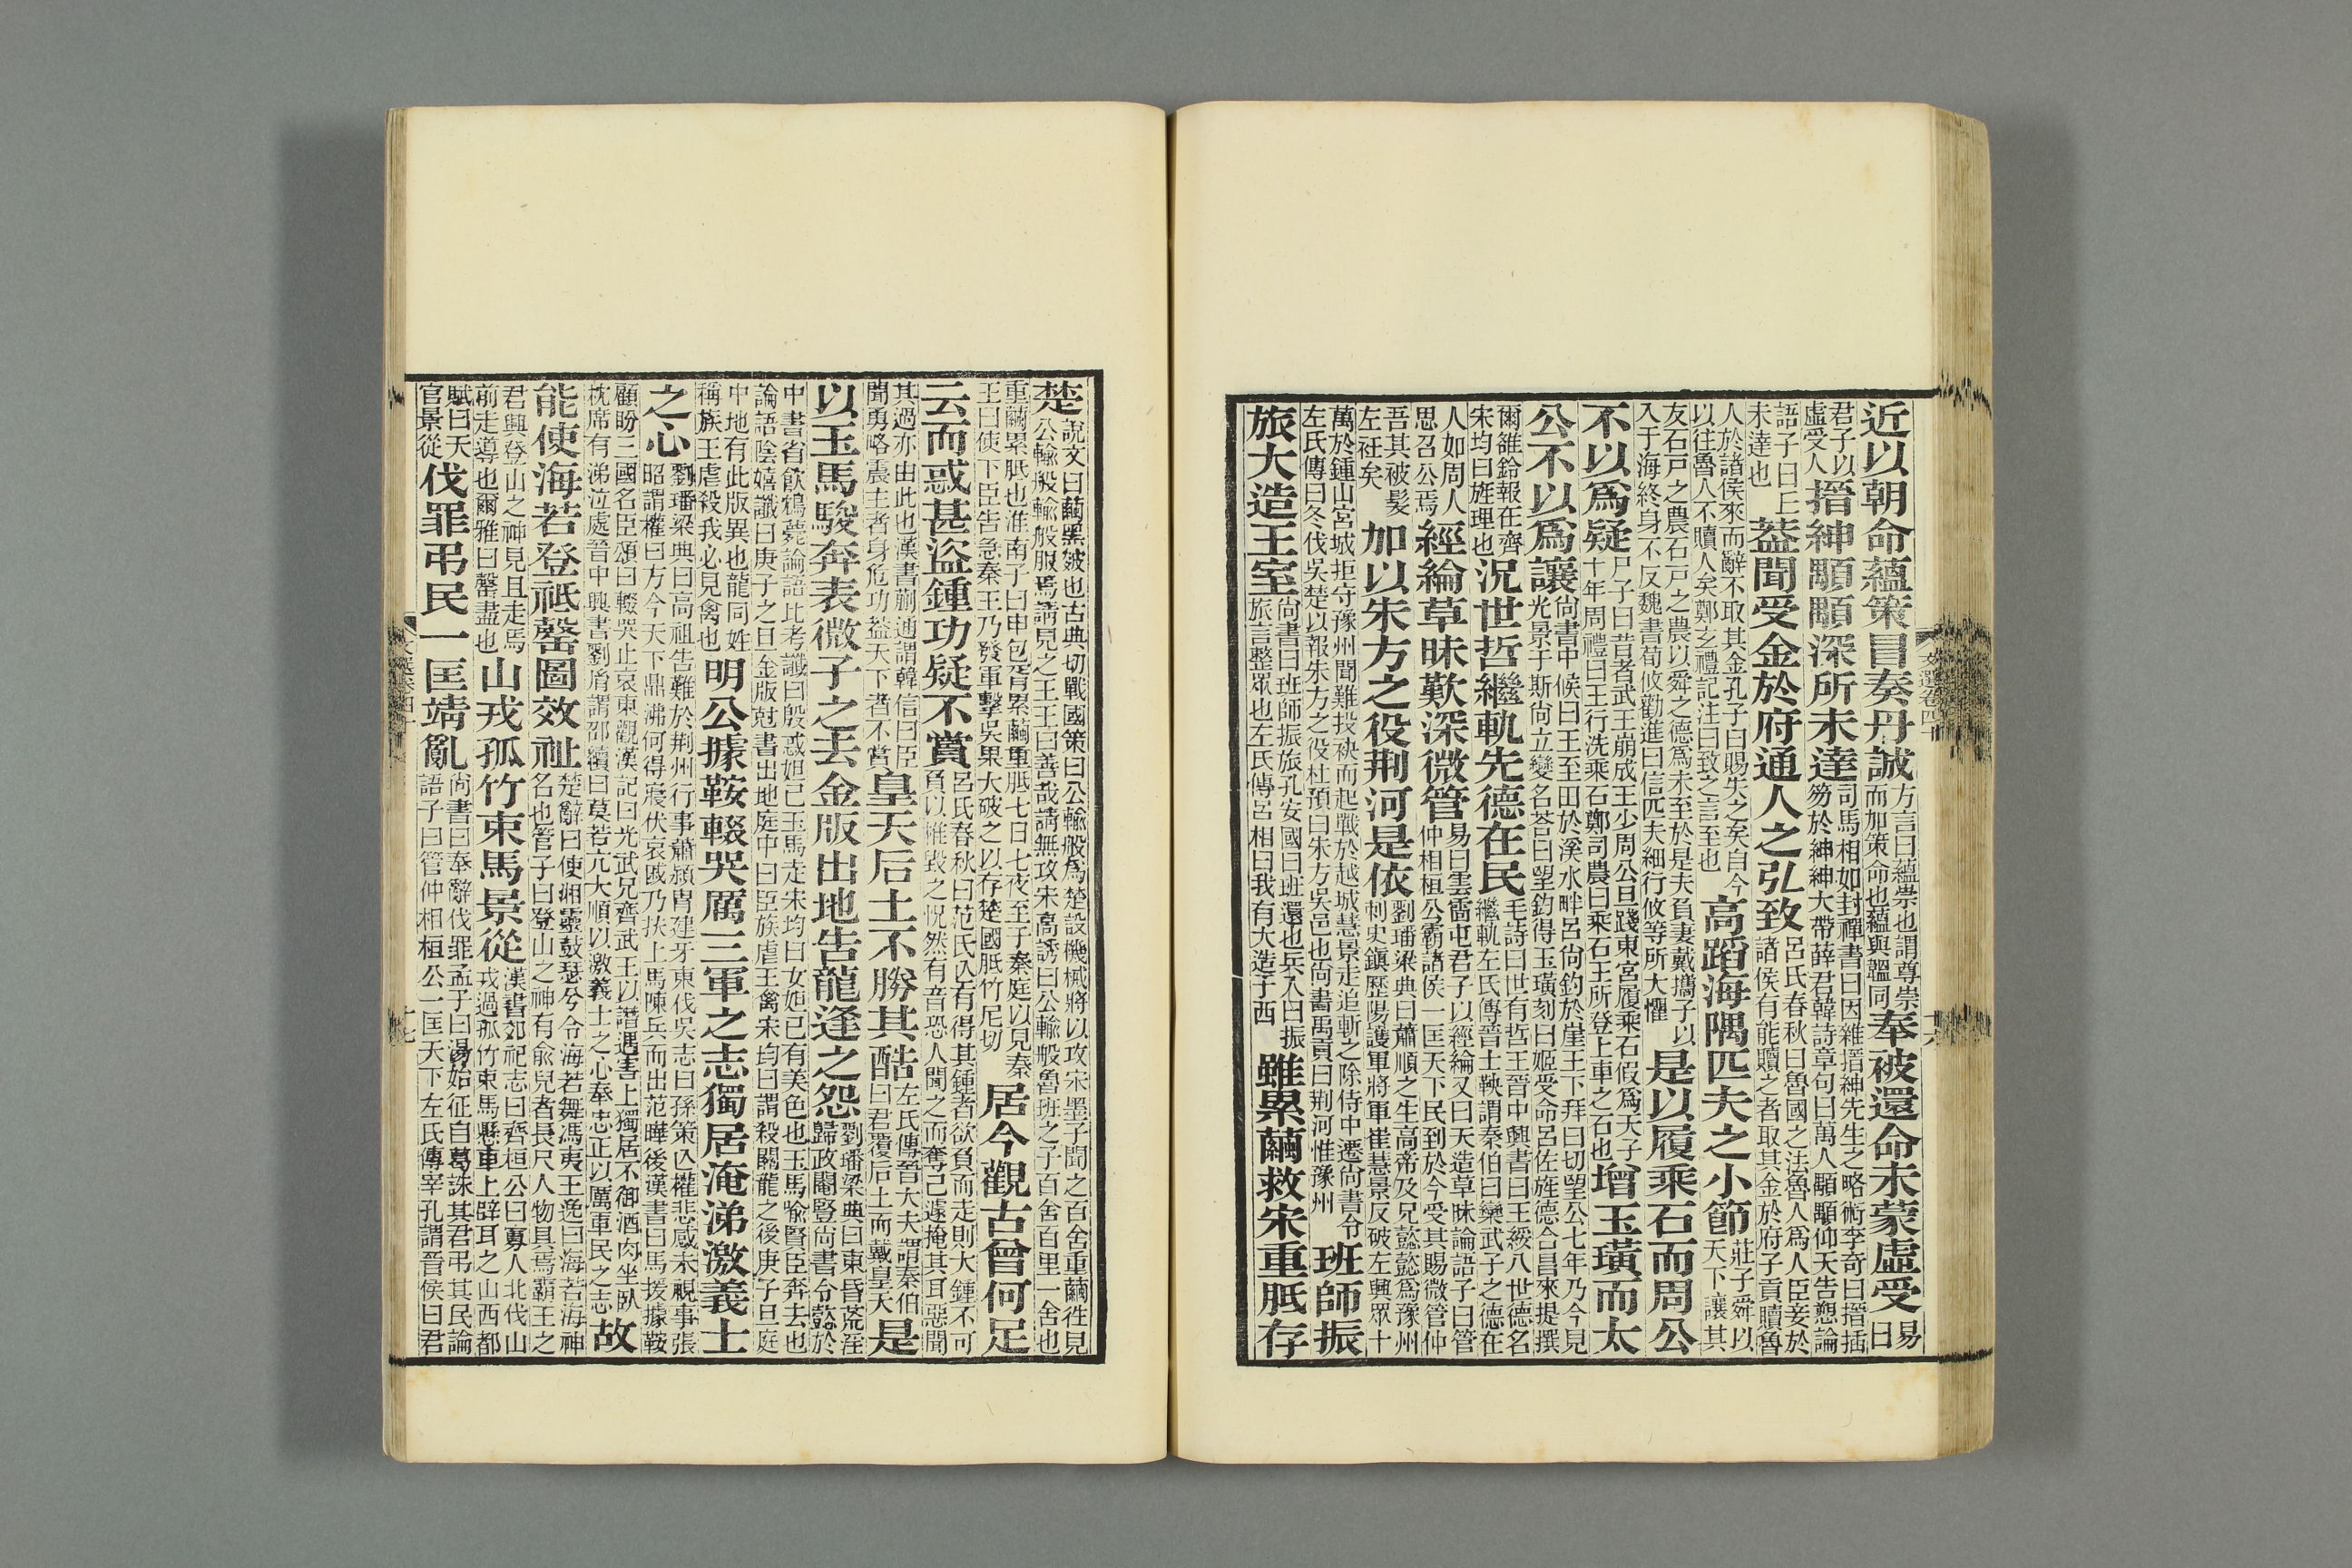 近以朝命蘊策冒奏丹誠方言曰蘊崇也謂尊崇而加策命也蘊與韞同奉被還命未蒙虛受易曰
君子以虛受人搢紳顒顒深所未達司馬相如封禪書曰因雜搢紳先生之略術李奇曰搢插笏於紳紳大帶薛君韓詩章句曰萬人顒顒仰天告愬論
語子曰丘未達也蓋聞受金於府通人之弘致呂氏春秋曰魯國之法魯人爲人臣妾於諸侯有能贖之者取其金於府子貢贖魯
人於諸侯來而辭不取其金孔子曰賜失之矣自今以往魯人不贖人矣鄭玄禮記注曰致之言至也高蹈海隅匹夫之小節莊子舜以天下讓其
友石戶之農石戶之農以舜之德爲未至於是夫負妻戴攜子以入于海終身不反魏書荀攸勸進曰信匹夫細行攸等所大懼是以履乘石而周公
不以爲疑尸子曰昔者武王崩成王少周公旦踐東宮履乘石假爲天子十年周禮曰王行洗乘石鄭司農曰乘石王所登上車之石也增玉璜而太
公不以爲讓尚書中候曰王至田於溪水畔呂尚釣於崖王下拜曰切望公七年乃今見光景于斯尚立變名荅曰望釣得玉璜刻曰姬受命呂佐旌德合昌來提撰
爾雒鈐報在齊宋均曰旌理也況世哲繼軌先德在民毛詩曰世有哲王晉中興書曰王綏八世德名繼軌左氏傳晉士鞅謂秦伯曰欒武子之德在
人如周人思召公焉經綸草昧歎深微管易曰雲雷屯君子以經綸又曰天造草昧論語子曰管仲相桓公霸諸侯一匡天下民到於今受其賜微管仲
吾其被髮左衽矣加以朱方之役荆河是依劉璠梁典曰蕭順之生高帝及兄懿懿爲豫州刺史鎮歷陽護軍將軍崔慧景反破左興眾十
萬於鍾山宮城拒守豫州聞難投袂而起戰於越城慧景走追斬之除侍中遷尚書令左氏傳曰冬伐吳楚以報朱方之役杜預曰朱方吳邑也尚書禹貢曰荆河惟豫州班師振
旅大造王室尚書曰班師振旅孔安國曰班還也兵入曰振旅言整眾也左氏傳呂相曰我有大造于西雖累繭救宋重胝存
文選卷四十
楚說文曰繭黑皴也古典切戰國策曰公輸般爲楚設機械將以攻宋墨子聞之百舍重繭往見公輸般輸般服焉請見之王王曰善哉請無攻宋高誘曰公輸般魯班之子百舍百里一舍也
重繭累胝也淮南子曰申包胥累繭重胝七日七夜至于秦庭以見秦王曰使下臣告急秦王乃發軍擊吳果大破之以存楚國胝竹尼切居今觀古曾何足
云而惑甚盜鍾功疑不賞呂氏春秋曰范氏亾有得其鍾者欲負而走則大鍾不可負以椎毀之怳然有音恐人聞之而奪己遽掩其耳惡聞
其過亦由此也漢書蒯通謂韓信曰臣聞勇略震主者身危功蓋天下者不賞皇天后土不勝其酷左氏傳晉大夫謂秦伯曰君覆后土而戴皇天是
以玉馬駿奔表微子之去金版出地告龍逢之怨劉璠梁典曰東昏荒淫歸政閹豎尚書令懿於
中書省飲鴆薨論語比考讖曰殷惑妲己玉馬走宋均曰女妲己有美色也玉馬喻賢臣奔去也論語陰嬉讖曰庚子之旦金版尅書出地庭中曰臣族虐王禽宋均曰謂殺關龍之後庚子旦庭
中地有此版異也龍同姓稱族王虐殺我必見禽也明公據鞍輟哭厲三軍之志獨居淹涕激義士
之心劉璠梁典曰高祖告難於荆州行事蕭穎胄建牙東伐吳志曰孫策亾權悲感未視事張昭謂權曰方今天下鼎沸何得寢伏哀戚乃扶上馬陳兵而出范曄後漢書曰馬援據鞍
顧盼三國名臣頌曰輟哭止哀東觀漢記曰光武兄齊武王以譖遇害上獨居不御酒肉坐臥枕席有涕泣處晉中興書劉胤謂邵續曰莫若亢大順以激義士之心奉忠正以厲軍民之志故
能使海若登祗罄圖效祉楚辭曰使湘靈鼓瑟兮令海若舞馮夷王逸曰海若海神名也管子曰登山之神有兪兒者長尺人物具焉霸王之
君興登山之神見且走馬前走導也爾雅曰罄盡也山戎孤竹束馬景從漢書郊祀志曰齊桓公曰寡人北伐山戎過孤竹束馬懸車上辟耳之山西都
賦曰天官景從伐罪弔民一匡靖亂尚書曰奉辭伐罪孟子曰湯始征自葛誅其君弔其民論語子曰管仲相桓公一匡天下左氏傳宰孔謂晉侯曰君
文選卷四十